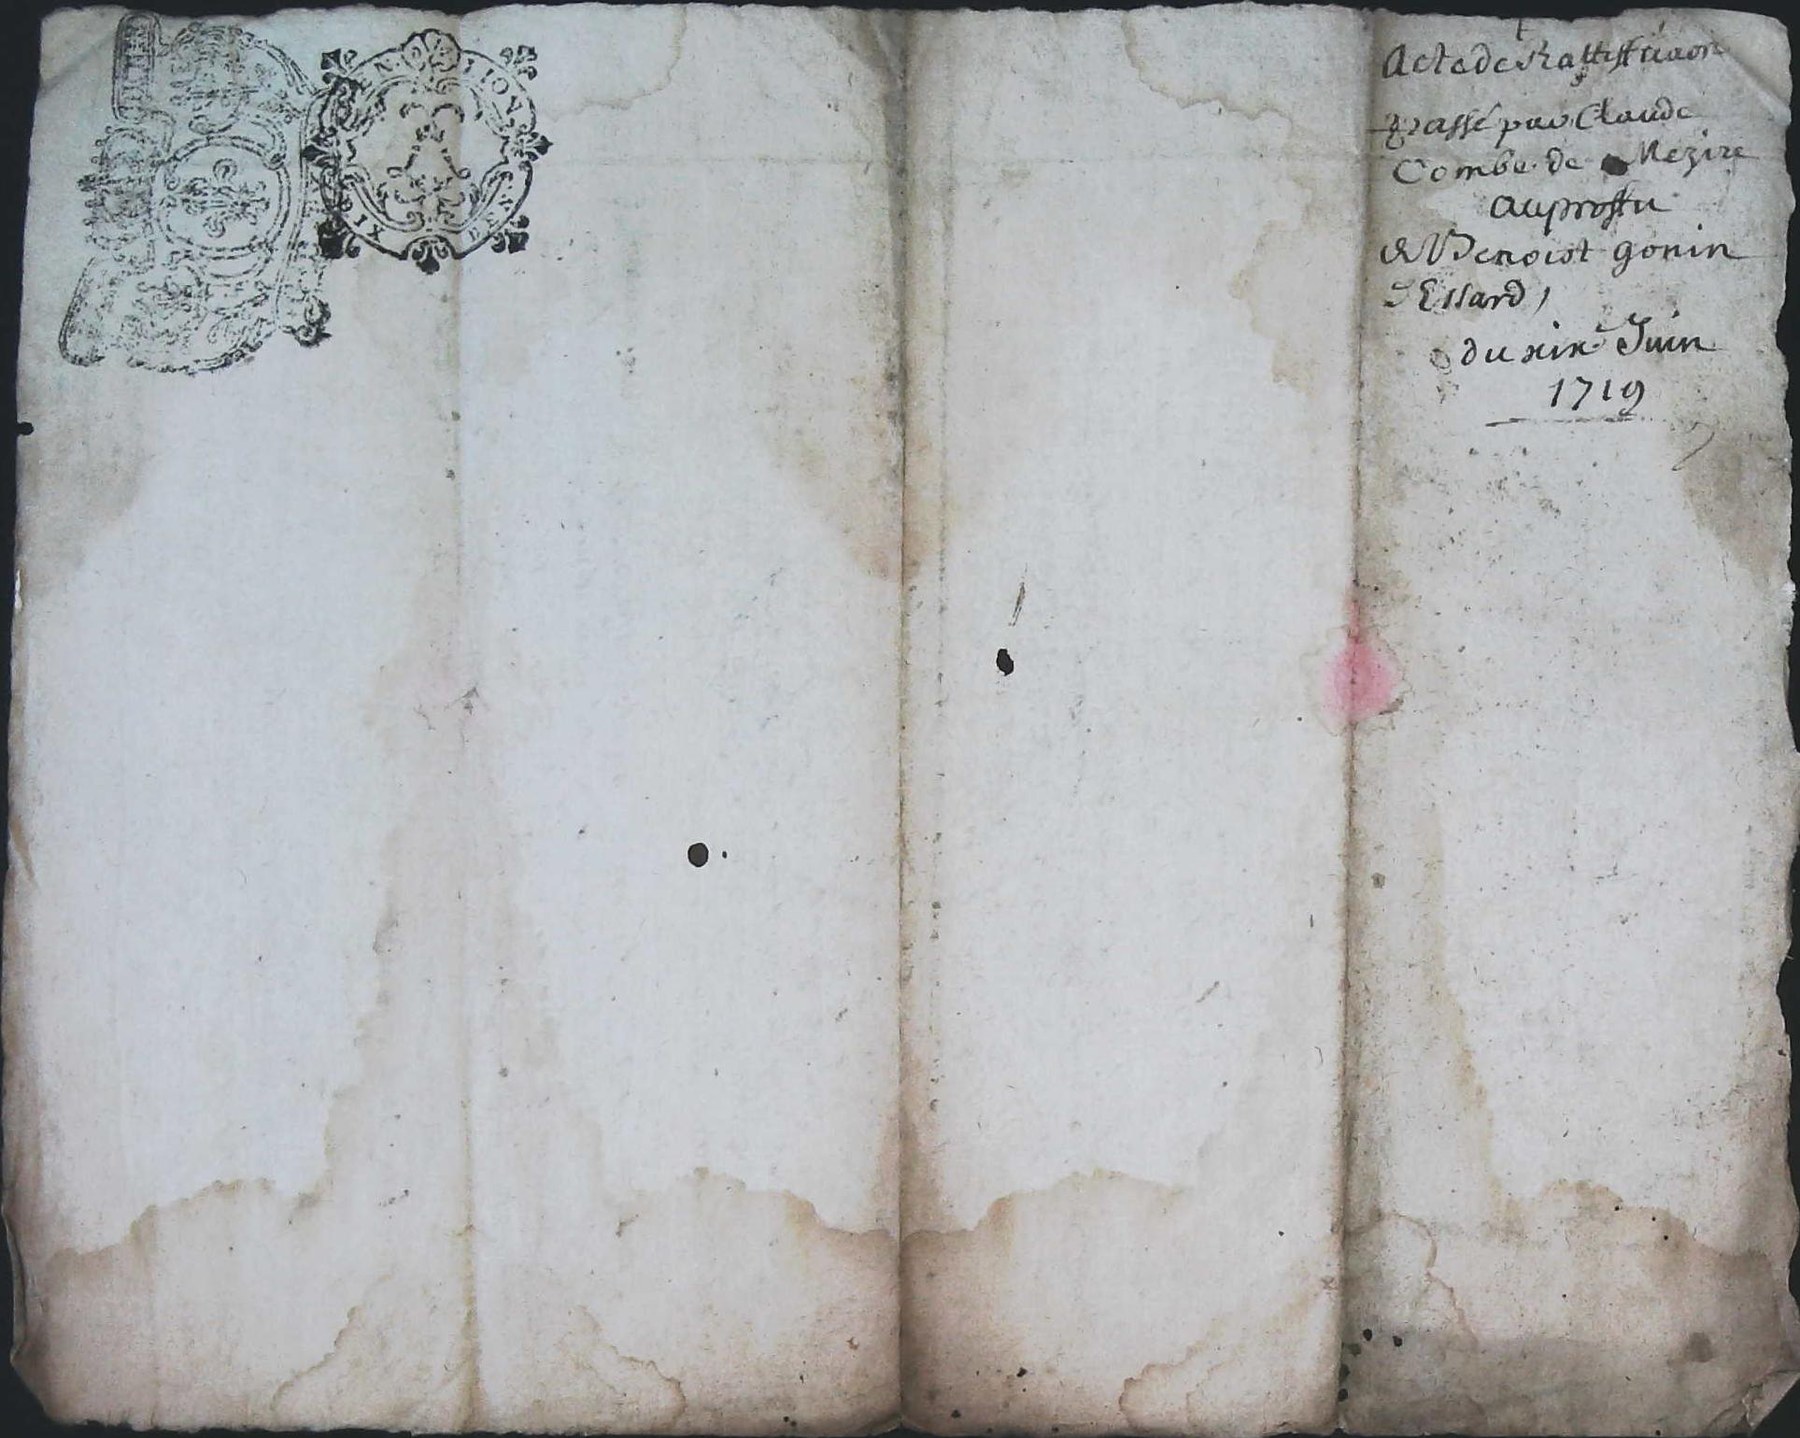 GEN DE LION
SIX DEN
Acte de Rattiffication
passé par Claude
Combe de Mezire
au proffit
de Benoist gonin
d'Essard,
du xixe Juin
1719